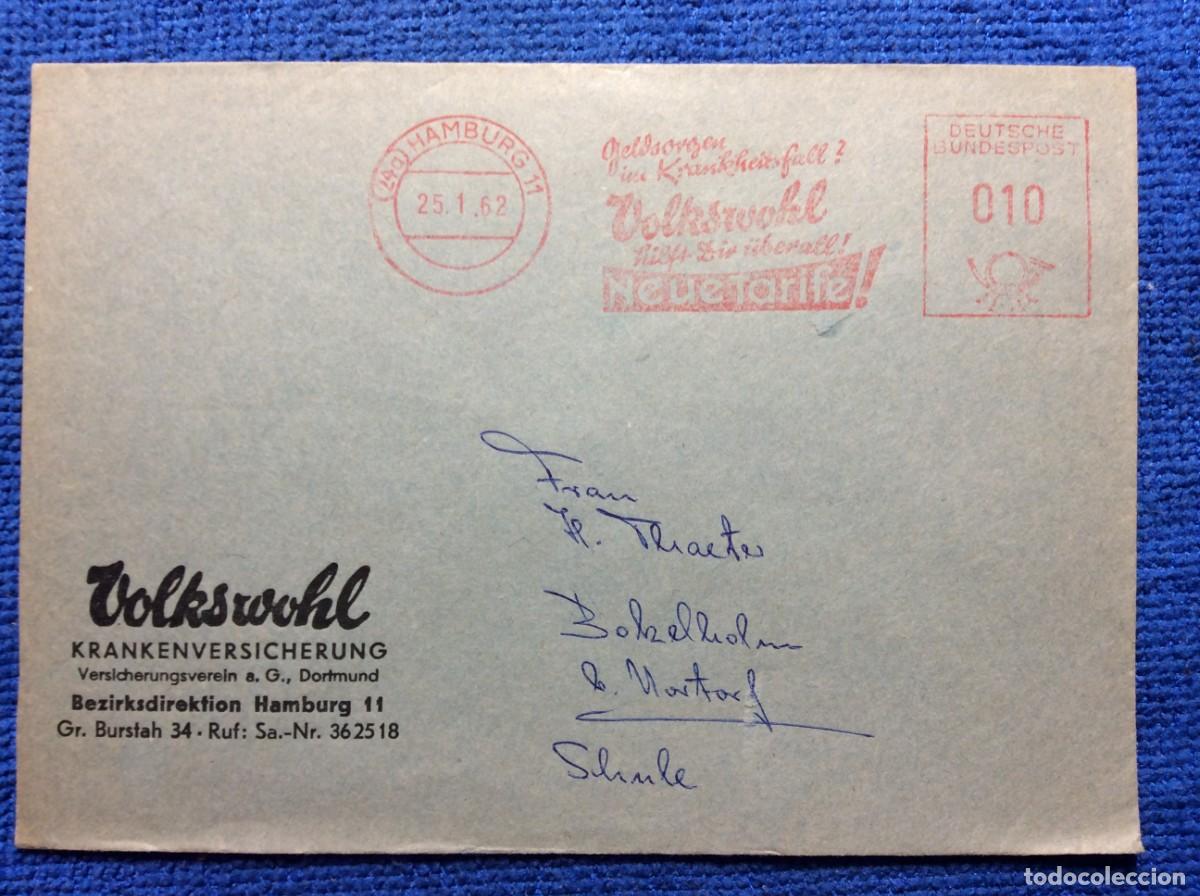 (24a) HAMBURG 11
25.1.62
Geldsorgen
im Krankheitsfall?
Volkswohl
hilft Dir überall!
Neue Tarife!
DEUTSCHE
BUNDESPOST
010
Frau
H. Thraeter
Bokelholm
b. Nortorf
Schule
Volkswohl
KRANKENVERSICHERUNG
Versicherungsverein a. G., Dortmund
Bezirksdirektion Hamburg 11
Gr. Burstah 34 · Ruf: Sa.-Nr. 362518
todocoleccion